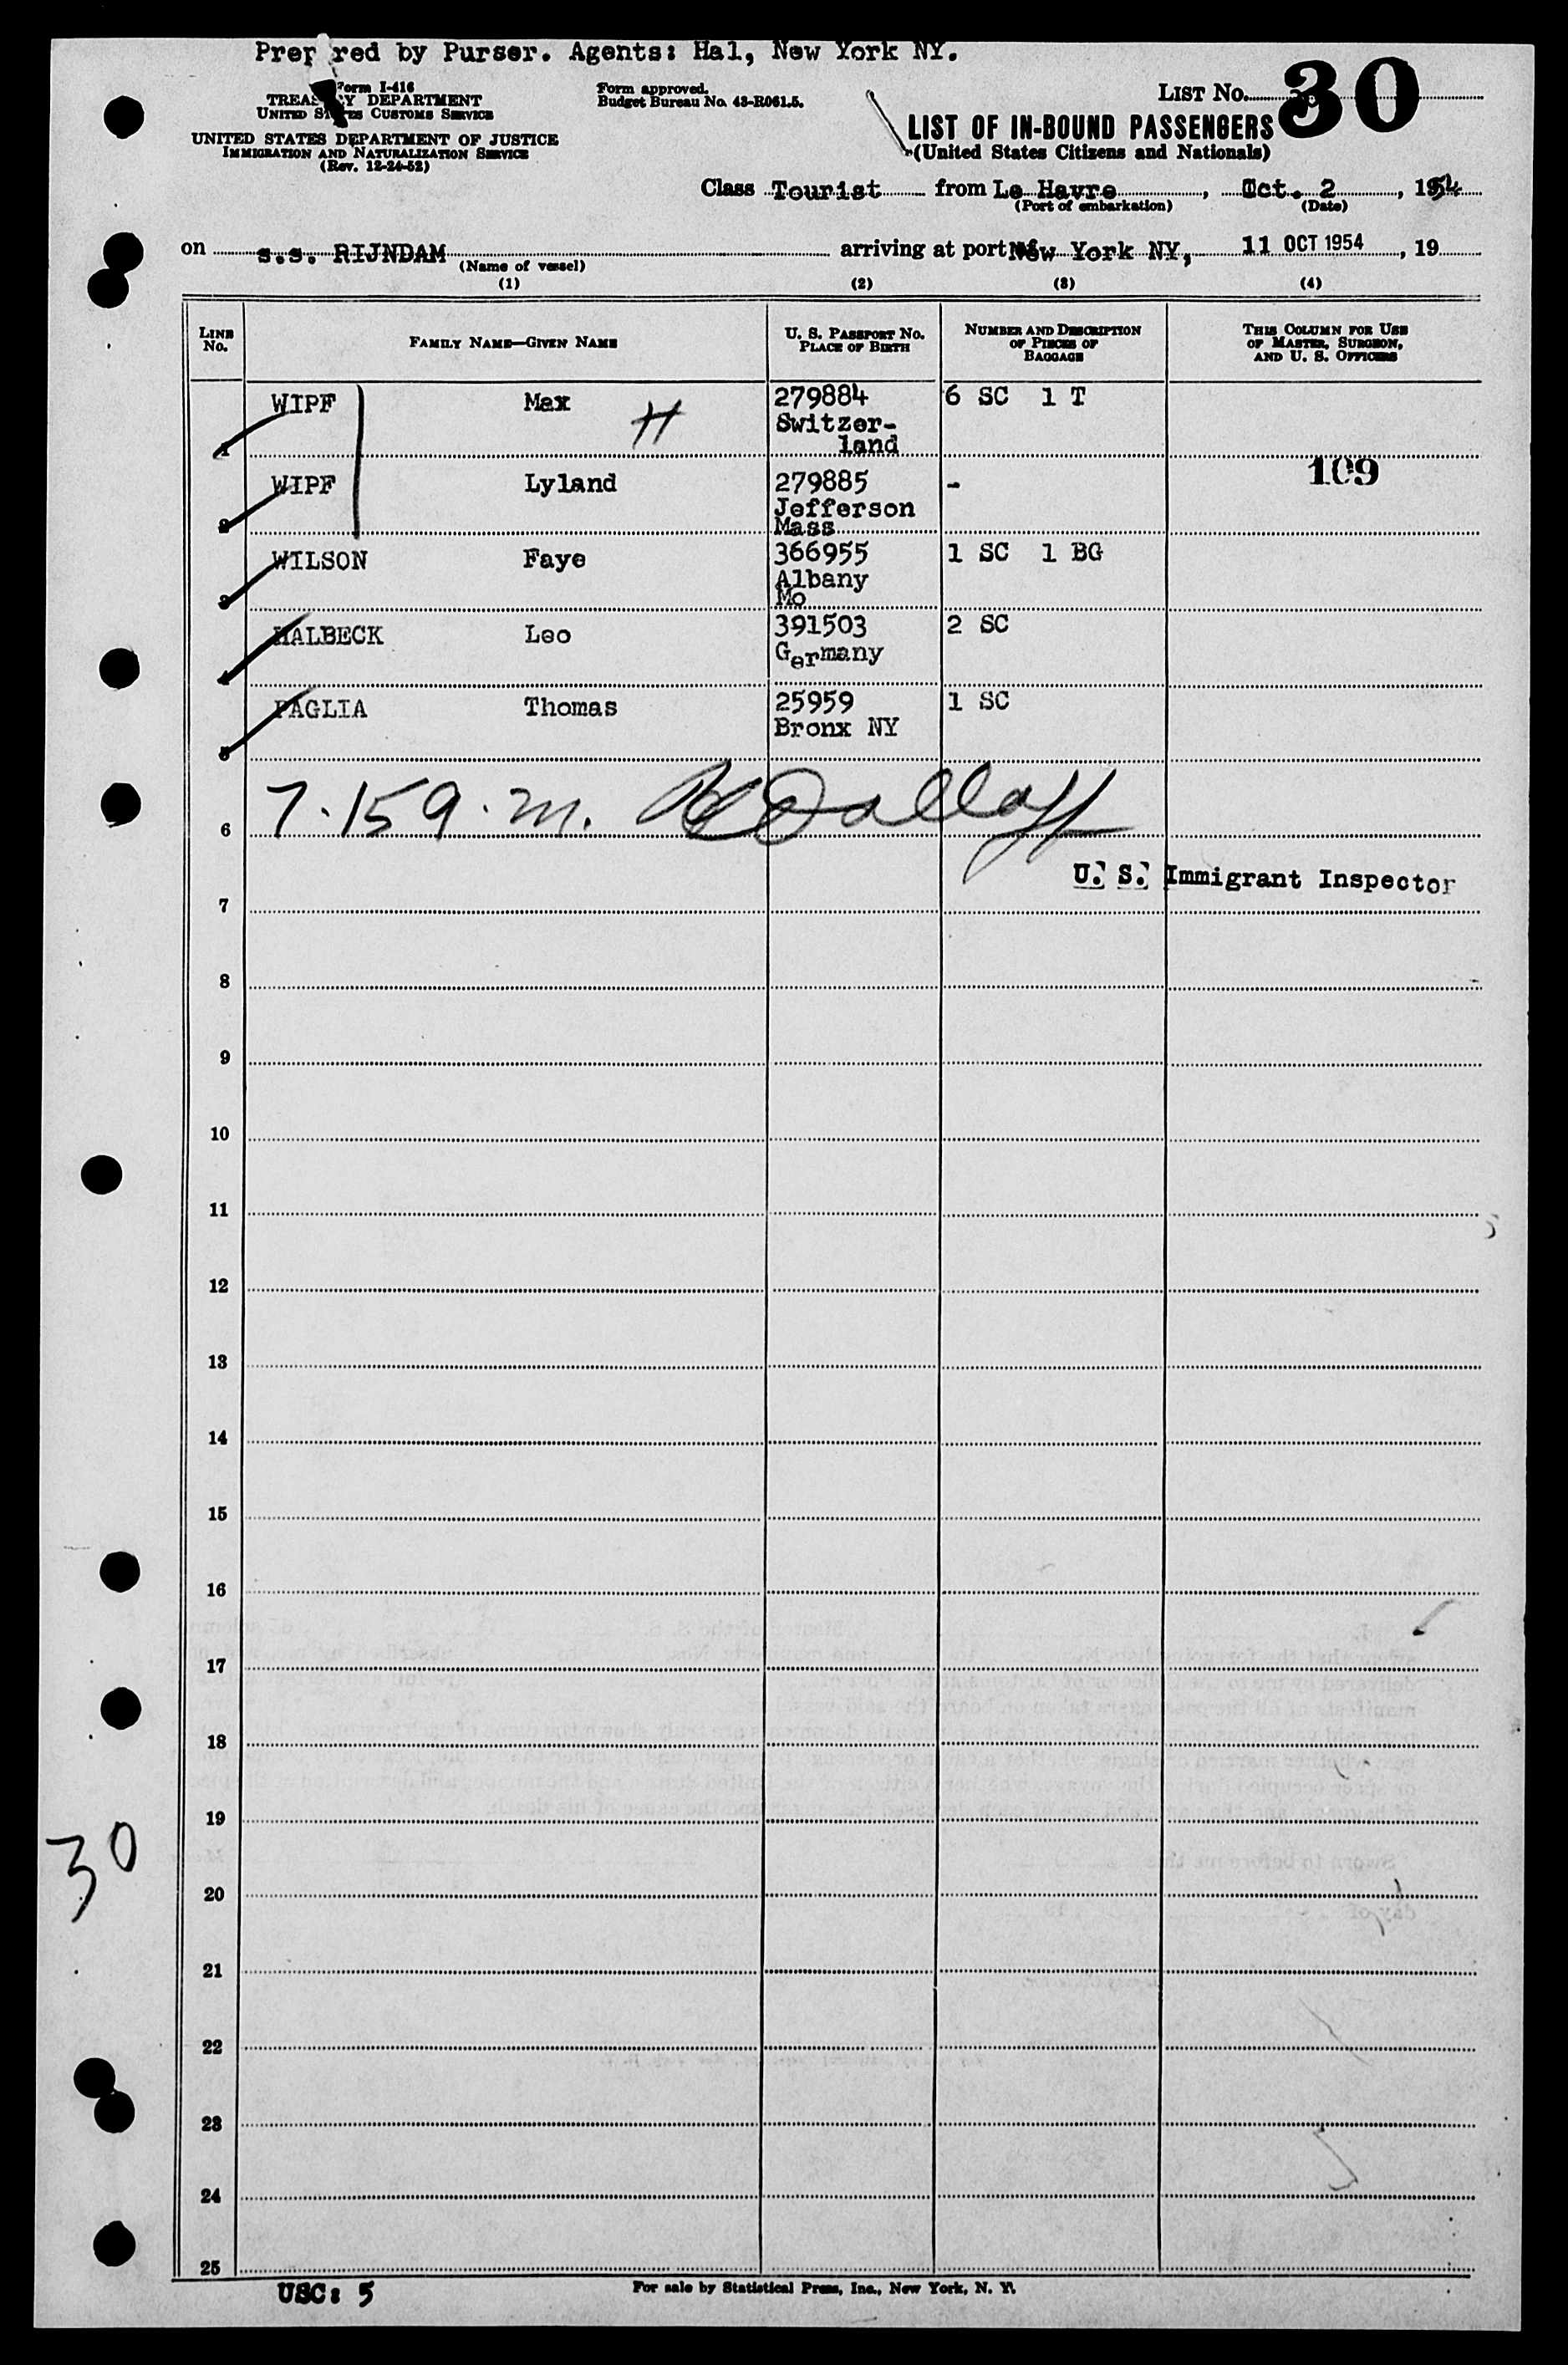 Prepared by Purser. Agents: Hal, New York NY.
Form I-416
TREASURY DEPARTMENT
UNITED STATES CUSTOMS SERVICE
UNITED STATES DEPARTMENT OF JUSTICE
IMMIGRATION AND NATURALIZATION SERVICE
(Rev. 12-24-52)
Form approved.
Budget Bureau No. 43-R061.5.
LIST No. 30
LIST OF IN-BOUND PASSENGERS
(United States Citizens and Nationals)
Class Tourist from Le Havre, Oct. 2, 1954
(Port of embarkation) (Date)
on s.s. RIJNDAM arriving at port of New York NY, 11 OCT 1954, 19
(Name of vessel)
(1) (2) (3) (4)
LINE No. FAMILY NAME—GIVEN NAME U. S. PASSPORT No. PLACE OF BIRTH NUMBER AND DESCRIPTION OF PIECES OF BAGGAGE THIS COLUMN FOR USE OF MASTER, SURGEON, AND U. S. OFFICERS
1 WIPF Max H 279884 6 SC 1 T
Switzer-
land
109
2 WIPF Lyland 279885 -
Jefferson
Mass
3 WILSON Faye 366955 1 SC 1 BG
Albany
Mo
4 HALBECK Leo 391503 2 SC
Germany
5 PAGLIA Thomas 25959 1 SC
Bronx NY
6 7-159.m.
U. S. Immigrant Inspector
7
8
9
10
11
12
13
14
15
16
17
18
19
30
20
21
22
23
24
25
USC: 5
For sale by Statistical Press, Inc., New York, N. Y.